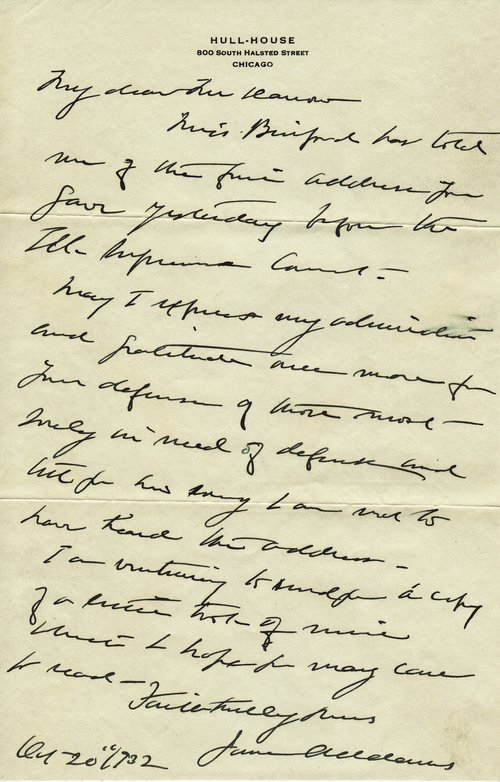 HULL-HOUSE
800 SOUTH HALSTED STREET
CHICAGO
My dear Mr Darrow
Miss Binford has told
me of the fine address you
gave yesterday before the
Ills Supreme Court -
May I express my admiration
and gratitude once more for
your defense of those most
in need of defense and
how sorry I am not to
have heard the address -
I am venturing to send you a copy
of a little book of mine
which I hope you may care
to read -
Faithfully yours
Jane Addams
Oct 20" 1932